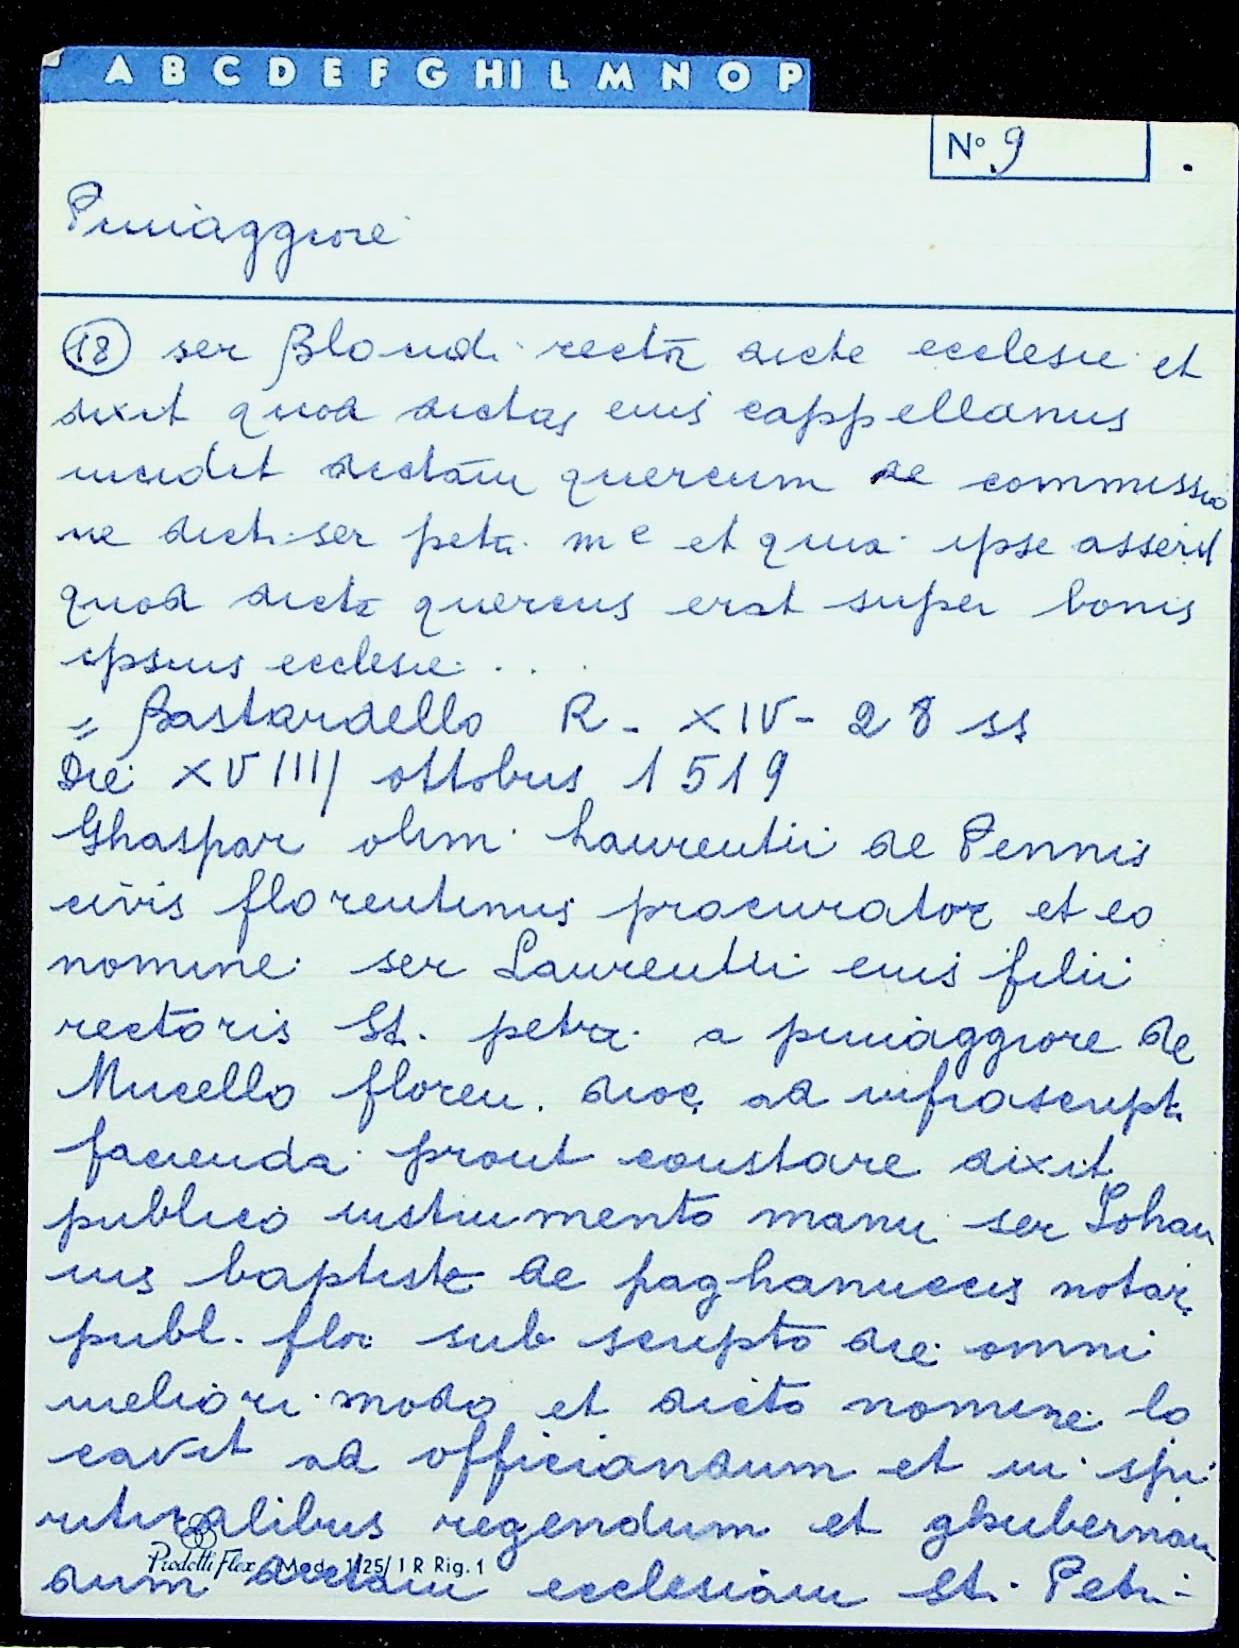 A B C D E F G HI L M N O P
N° 9
Pimiaggiore
18 ser Blondi rectā dicte ecclesie et
dixit quod dictas eius cappellanus
incidit dictām quercum de commissio
ne dicti ser petri m e et quia ipse asserit
quod dicta quercus erat super bonis
ipsius ecclesie . . .
= Bastardello R - XIV - 28 ss
Die XVIIII ottobus 1519
Ghaspar olim Laurentii de Pennis
civis florentinus procurator et eo
nomine ser Laurentii eius filii
rectoris St. petri a pimiaggiore de
Mucello floren. dioc. ad infrascript.
facienda prout constare dixit
publico instrumento manu ser Iohan
nis baptiste de paghanuccis notar.
publ. flor sub scripto die omni
meliori modo et dicto nomine lo
cavit ad officiandum et in spi
ritualibus regendum et ghubernan
dum dictam ecclesiam St. Petri -
Prodotti Flex Mod. 1125/1 R Rig. 1